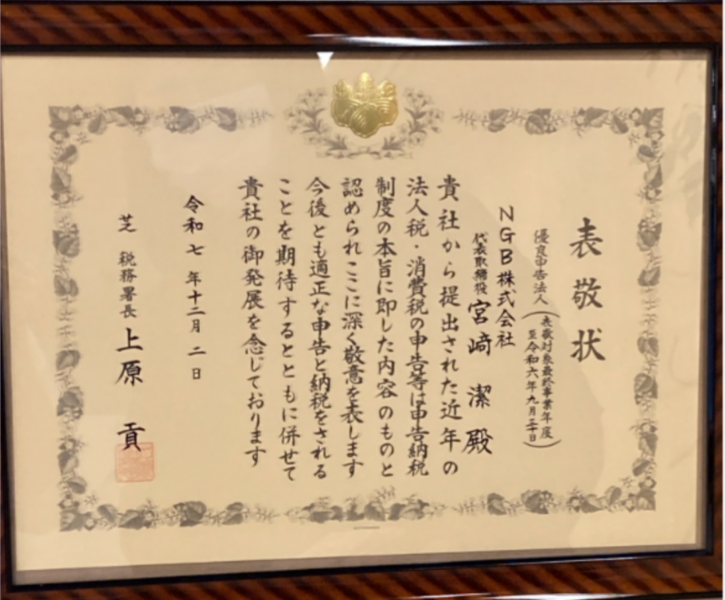 表敬状
優良申告法人
(表敬対象最終事業年度
至令和六年九月三十日)
NGB株式会社
代表取締役 宮﨑 潔 殿
貴社から提出された近年の
法人税・消費税の申告等は申告納税
制度の本旨に即した内容のものと
認められここに深く敬意を表します
今後とも適正な申告と納税をされる
ことを期待するとともに併せて
貴社の御発展を念じております
令和七年十二月二日
芝税務署長 上原 貢